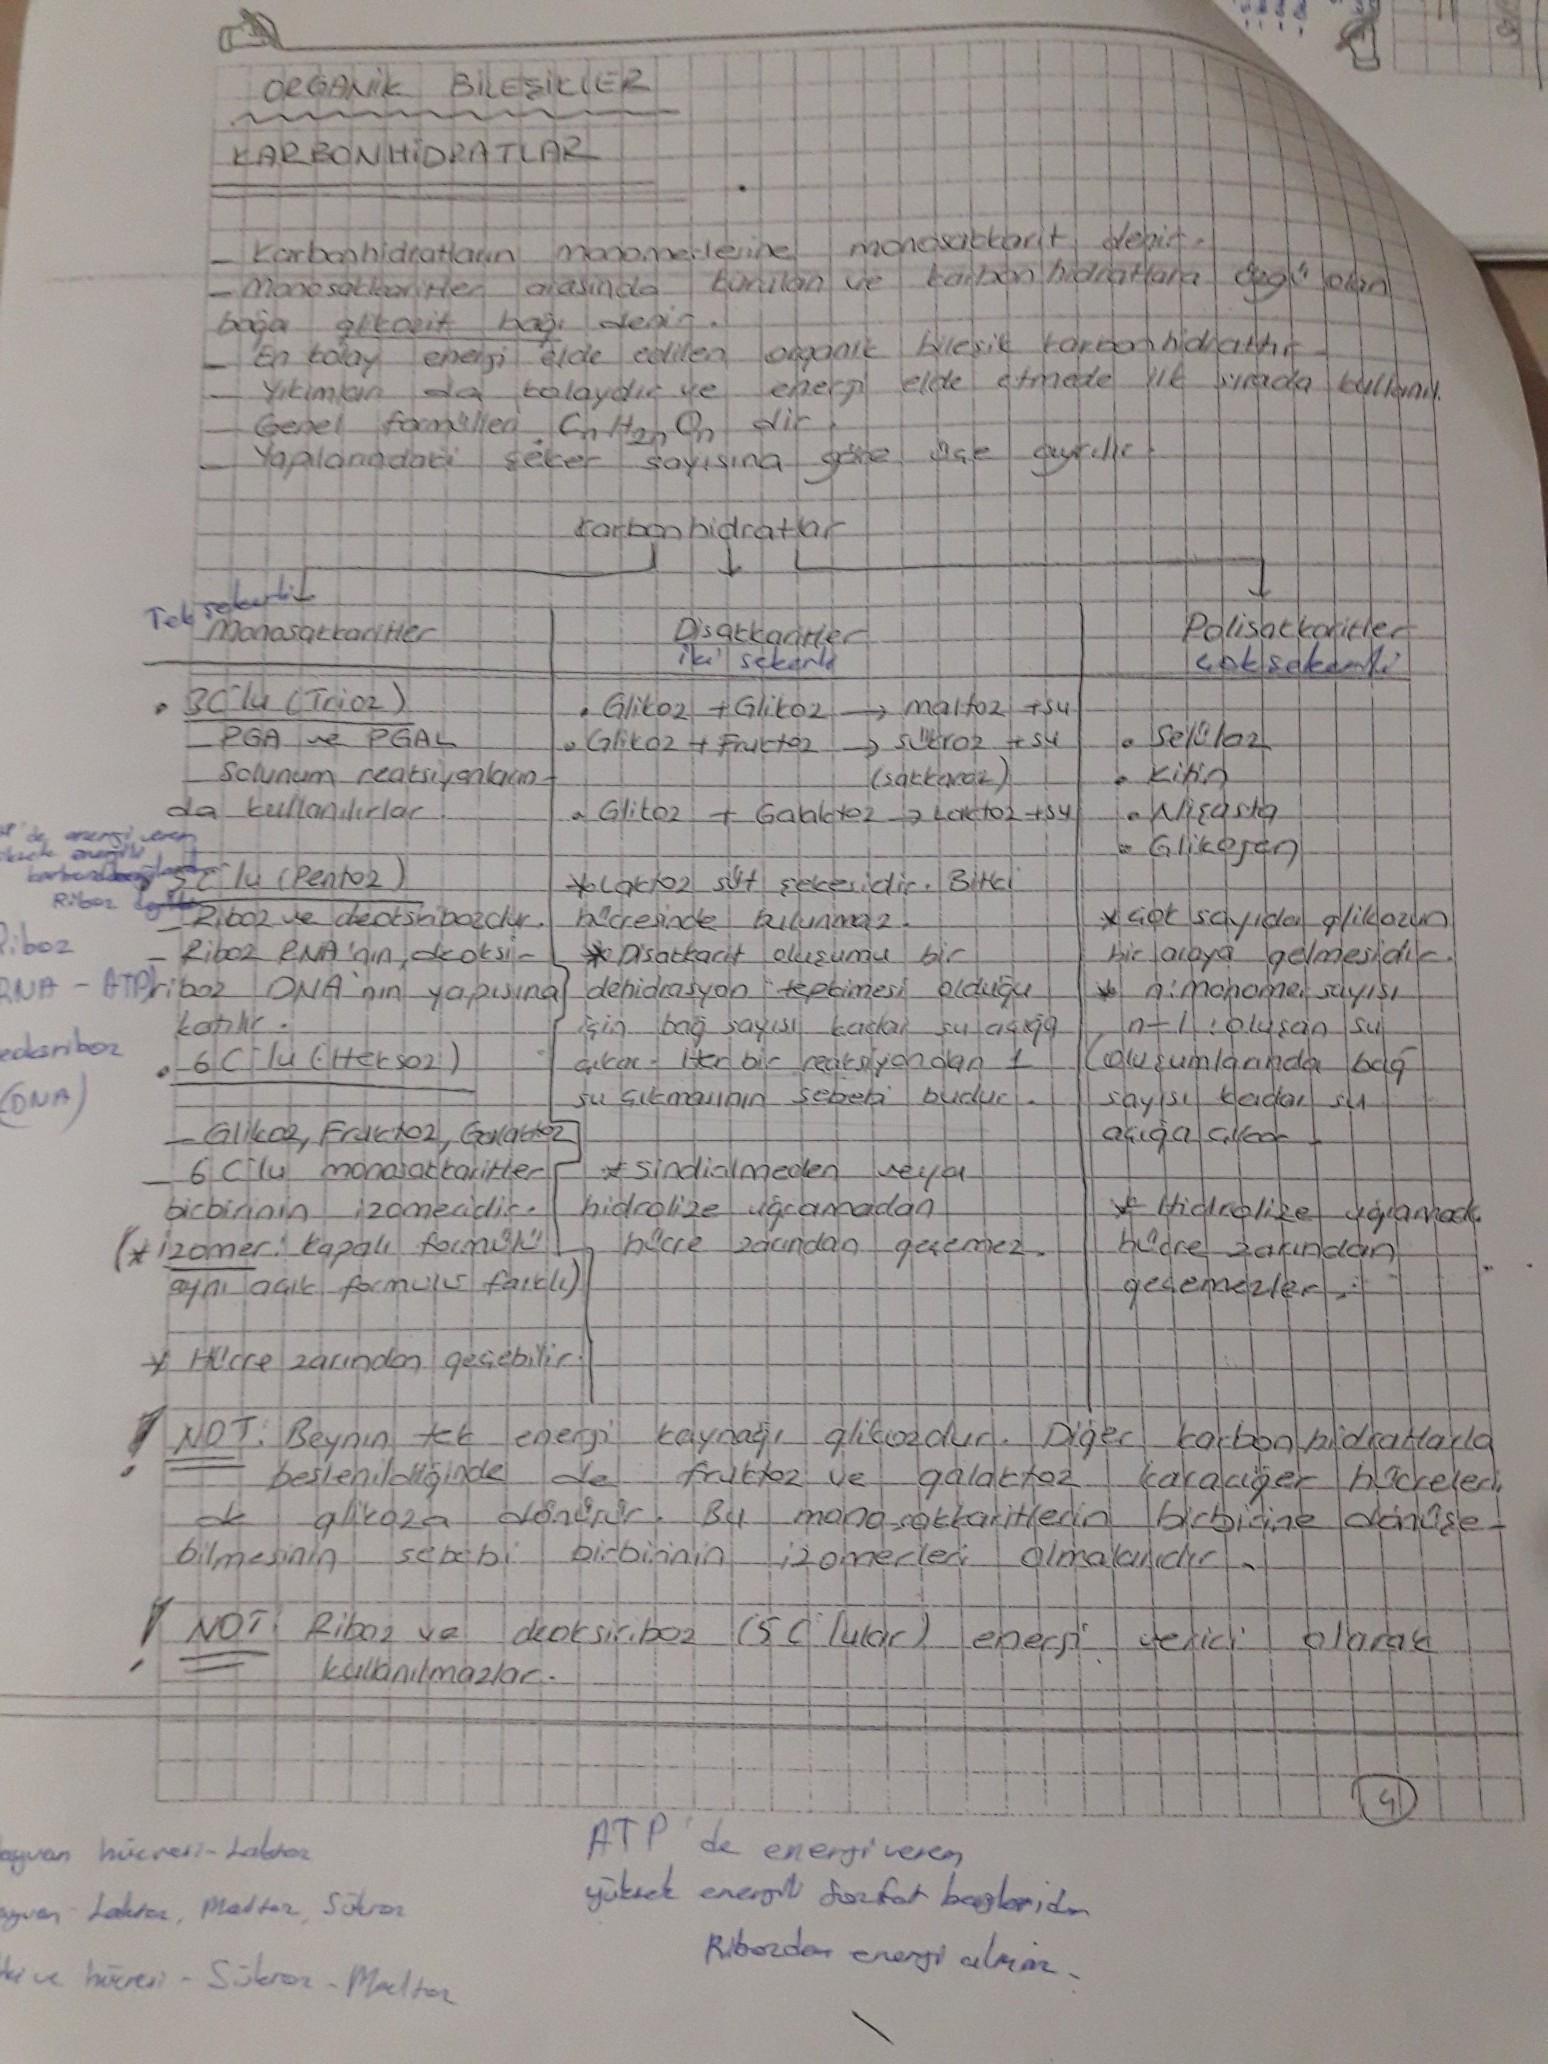 ORGANİK BİLEŞİKLER
KARBONHİDRATLAR
- Karbonhidratların monomerlerine monosakkarit denir.
- Monosakkaritler arasında kurulan ve karbonhidratlara özgü olan
bağa glikozit bağı denir.
- En kolay enerji elde edilen organik bileşik karbonhidrattır.
- Yıkımları da kolaydır ve enerji elde etmede ilk sırada kullanılır.
- Genel formülleri CnH2nOn dir.
- Yapılarındaki şeker sayısına göre üçe ayrılır.
Karbonhidratlar
Tek şekerli
Monosakkaritler
• 3C'lu (Trioz)
- PGA ve PGAL
- Solunum reaksiyonların-
da kullanılırlar.
• 5C'lu (Pentoz)
- Riboz ve deoksiribozdur.
- Riboz RNA'nın, deoksi-
riboz DNA'nın yapısına
katılır.
• 6C'lu (Heksoz)
- Glikoz, Fruktoz, Galaktoz
- 6C'lu monosakkaritler
birbirinin izomeridir.
(* izomer: kapalı formülü
aynı açık formülü farklı)
* Hücre zarından geçebilir.
Disakkaritler
iki şekerli
• Glikoz + Glikoz → maltoz + su
• Glikoz + Fruktoz → sükroz + su
(sakkaroz)
• Glikoz + Galaktoz → Laktoz + su
* Laktoz süt şekeridir. Bitki
hücresinde bulunmaz.
* Disakkarit oluşumu bir
dehidrasyon tepkimesi olduğu
için bağ sayısı kadar su açığa
çıkar. Her bir reaksiyondan 1
su çıkmasının sebebi budur.
* Sindirilmeden veya
hidrolize uğramadan
hücre zarından geçemez.
Polisakkaritler
çok şekerli
• Selüloz
• Kitin
• Nişasta
• Glikojen
* Çok sayıda glikozun
bir araya gelmesidir.
* n: monomer sayısı
n-1: oluşan su
(oluşumlarında bağ
sayısı kadar su
açığa çıkar.
* Hidrolize uğramadan
hücre zarından
geçemezler.
de enerji veren
Riboz
Riboz
RNA - ATP)
deoksiriboz
(DNA)
! NOT: Beynin tek enerji kaynağı glikozdur. Diğer karbonhidratlarla
beslenildiğinde de fruktoz ve galaktoz karaciğer hücreleri
de glikoza dönüşür. Bu monosakkaritlerin birbirine dönüşe-
bilmesinin sebebi birbirinin izomerleri olmalarıdır.
! NOT: Riboz ve deoksiriboz (5C'lular) enerji verici olarak
kullanılmazlar.
4
hücresi - Laktoz
Laktoz, Maltoz, Sükroz
hücresi - Sükroz - Maltoz
ATP'de enerji veren
yüksek enerjili fosfat bağlarıdır
Ribozdan enerji alınmaz.